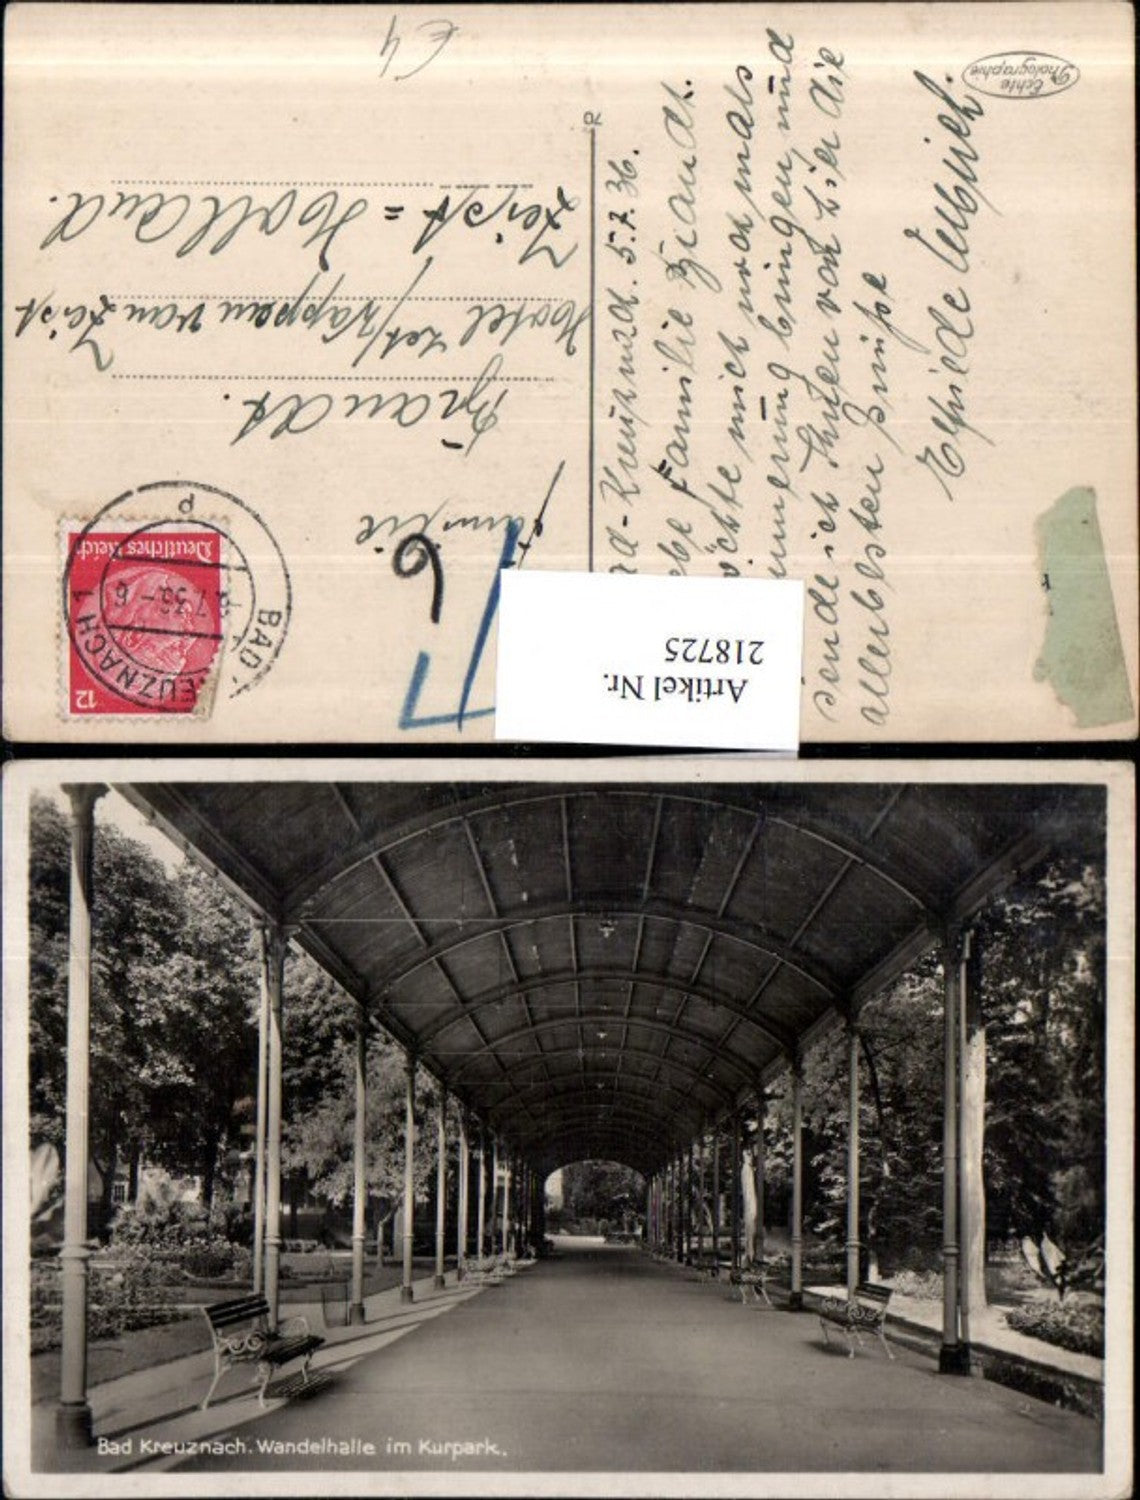 € 4
Echte
Photographie
70
Deutsches Reich
12
BAD KREUZNACH 1
6.7.36-6
p
6
Familie
Brandt.
Hotel het Wappen van Zeist
Zeist = Holland.
Bad-Kreuznach. 5.7.36.
Liebe Familie Brandt.
Möchte mich noch mals
in Erinnerung bringen und
sende ich Ihnen von hier die
allerbesten Grüße
Elfriede
Artikel Nr.
218725
Bad Kreuznach. Wandelhalle im Kurpark.